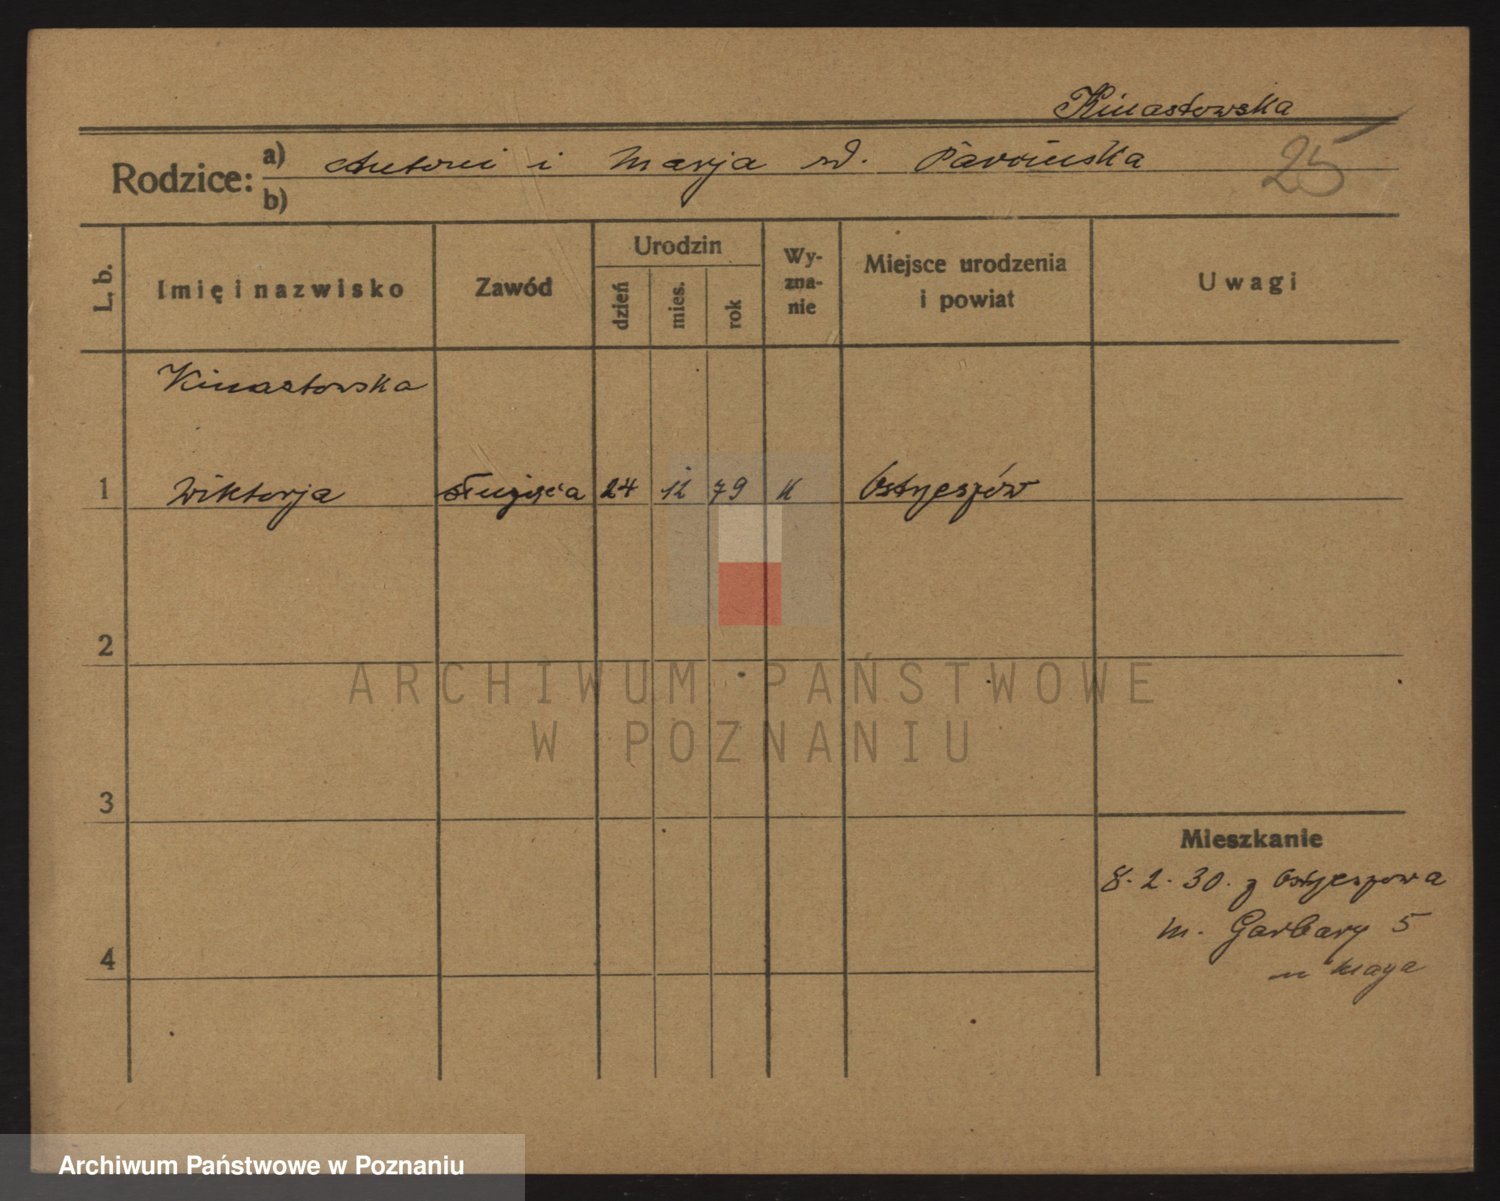 Kinastowska
Rodzice: a) Antoni i Marja rd.
b)
25
L. b.
Imię i nazwisko
Zawód
Urodzin
dzień
mies.
rok
Wy-
zna-
nie
Miejsce urodzenia
i powiat
Uwagi
Kinastowska
1 Wiktorja służąca 24 12 79 K Ostrzeszów
2
3
4
Mieszkanie
8.2.30. z Ostrzeszowa
m. Garbary 5
ARCHIWUM PAŃSTWOWE
W POZNANIU
Archiwum Państwowe w Poznaniu